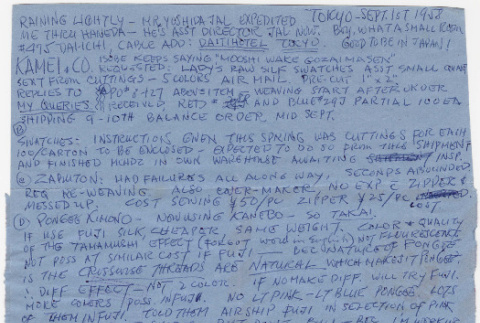 RAINING LIGHTLY - MR. YOSHIDA JAL EXPEDITED TOKYO - SEPT. 1ST 1958
ME THRU HANEDA - HE'S ASST DIRECTOR JAL NOW. BOY, WHAT A SMALL ROOM
#475 DAI-ICHI, CABLE ADD: DAITIHOTEL TOKYO. GOOD TO BE IN JAPAN!
KAMEI & CO. ISOBE KEEPS SAYING "MOOSHI WAKE GOZAIMASEN."
REQUESTED: LADY'S RAW SILF SWATCHES ASST SMALL
SEXT FROM CUTTINGS - 5 COLORS AIR MAIL. PRE-CUT 2 X 2"
REPLIES TO ABOVE WEAVING START AFTER ORDER
MY QUERIES. RECEIVED, RED & AND BLUE PARTIAL 100 EA.
SHIPPING 9-10TH BALANCE ORDER MID SEPT.
(B)
SWATCHES: INSTRUCTIONS GIVEN THIS SPRING WAS CUTTINGS FOR EACH
100/CARTON TO BE ENCLOSED - EXPECTED TO DO SO FROM THIS SHIPMENT
AND FINISHED HUNDZ IN OWN WAREHOUSE AWAITING INSP.
(C) ZABUTON: HAD FAILURES ALL ALONG WAY, SECONDS ABOUNDED
REQ RE-WEAVING. ALSO COVER-MAKER, NO EXP C ZIPPER &
MESSED UP, COST SEWING ¥50/PC ZIPPER ¥25/PC COST.
(D) PONGEE KIMONO - NOW USING KANEBO - SO TAKAI.
IF USE FUJI SILK, CHEAPER, SAME WEIGHT. COLOR & QUALITY
OF THE TAMAMUSHI EFFECT (FORGOT WORD IN ENGLISH) NOT FLUORESCENT
NOT POSS AT SIMILAR COST IF FUJI - NATURE OF PONGEE
IS THE CROSSWISE THREADS ARE NATURAL WHICH MAKES IT PONGEE.
DIFF EFFECT - NOT 2 COLOR. IF NO MAKE DIFF. WILL TRY FUJI.
MORE COLORS POSS. IN FUJI. NO LT PINK - LT BLUE PONGEE. LOTS
OF THEM IN FUJI. TOLD THEM AIRSHIP FUJI IN SELECTION OF PINK